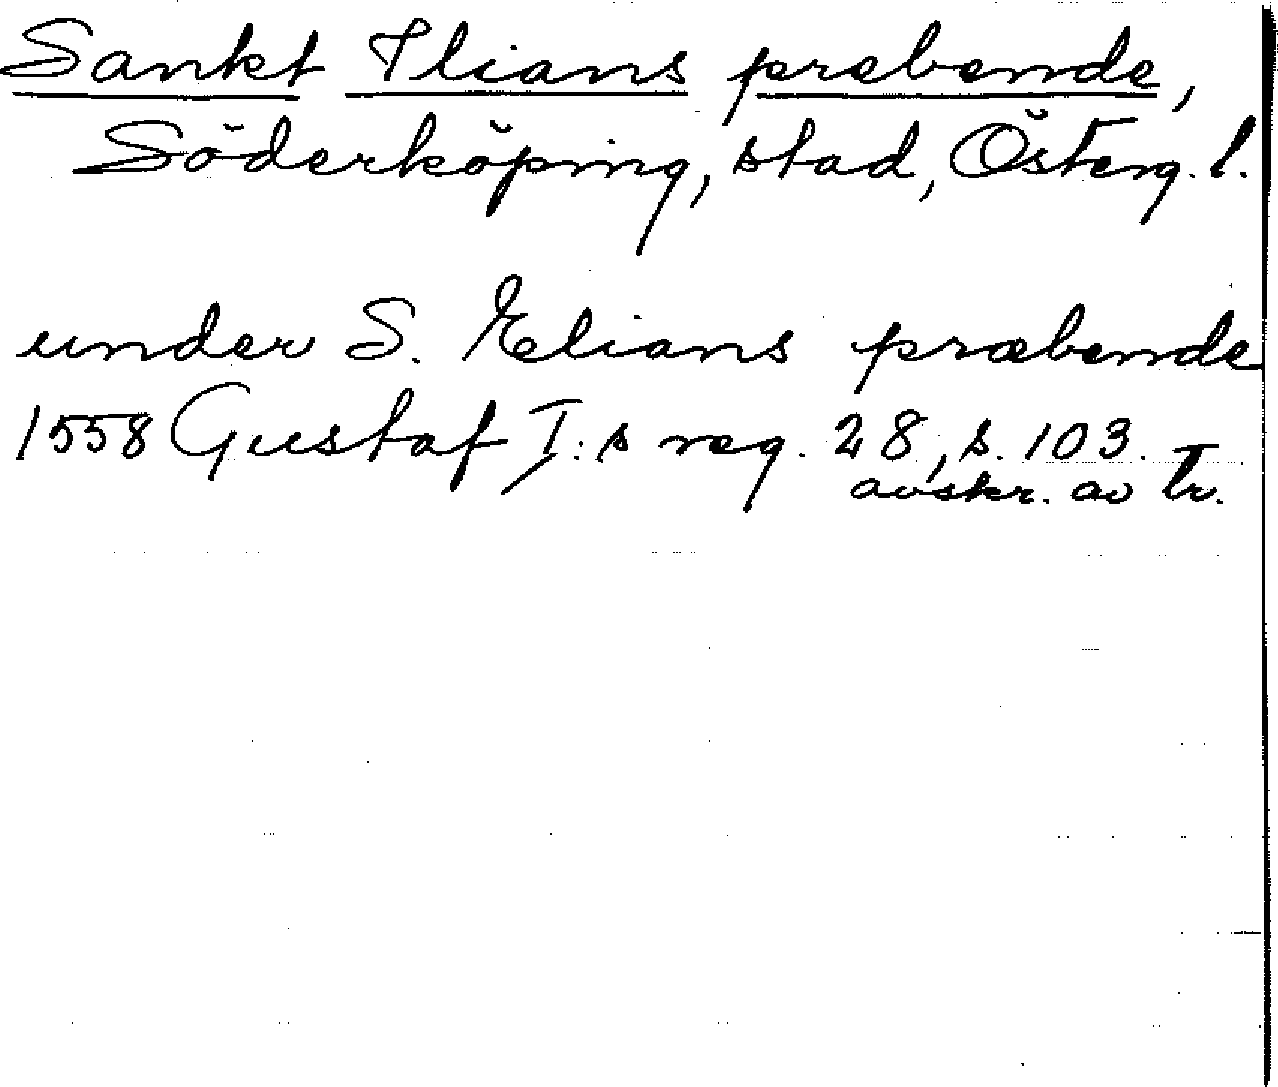 Sankt Ilians prebende,
Söderköping, stad, Österg. l.
under S. Elians præbende
1558 Gustaf I:s reg. 28, s. 103.
avskr. av tr.